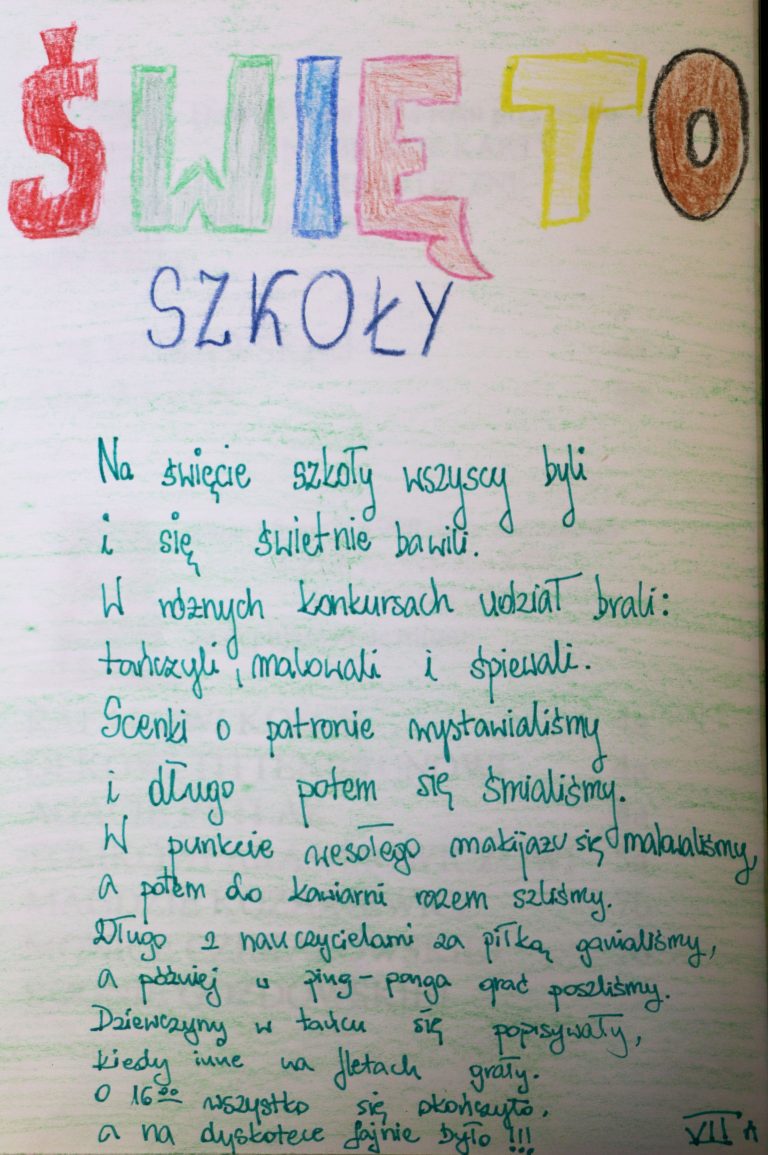 ŚWIĘTO
SZKOŁY
Na święcie szkoły wszyscy byli
i się świetnie bawili.
W różnych konkursach udział brali:
tańczyli, malowali i śpiewali.
Scenki o patronie wystawialiśmy
i długo potem się śmialiśmy.
W punkcie wesołego makijażu się malowaliśmy,
a potem do kawiarni razem szliśmy.
Długo z nauczycielami za piłką ganialiśmy,
a później w ping-ponga grać poszliśmy.
Dziewczyny w tańcu się popisywały,
kiedy inne na fletach grały.
O 16⁰⁰ wszystko się skończyło,
a na dyskotece fajnie było!!!
VII A